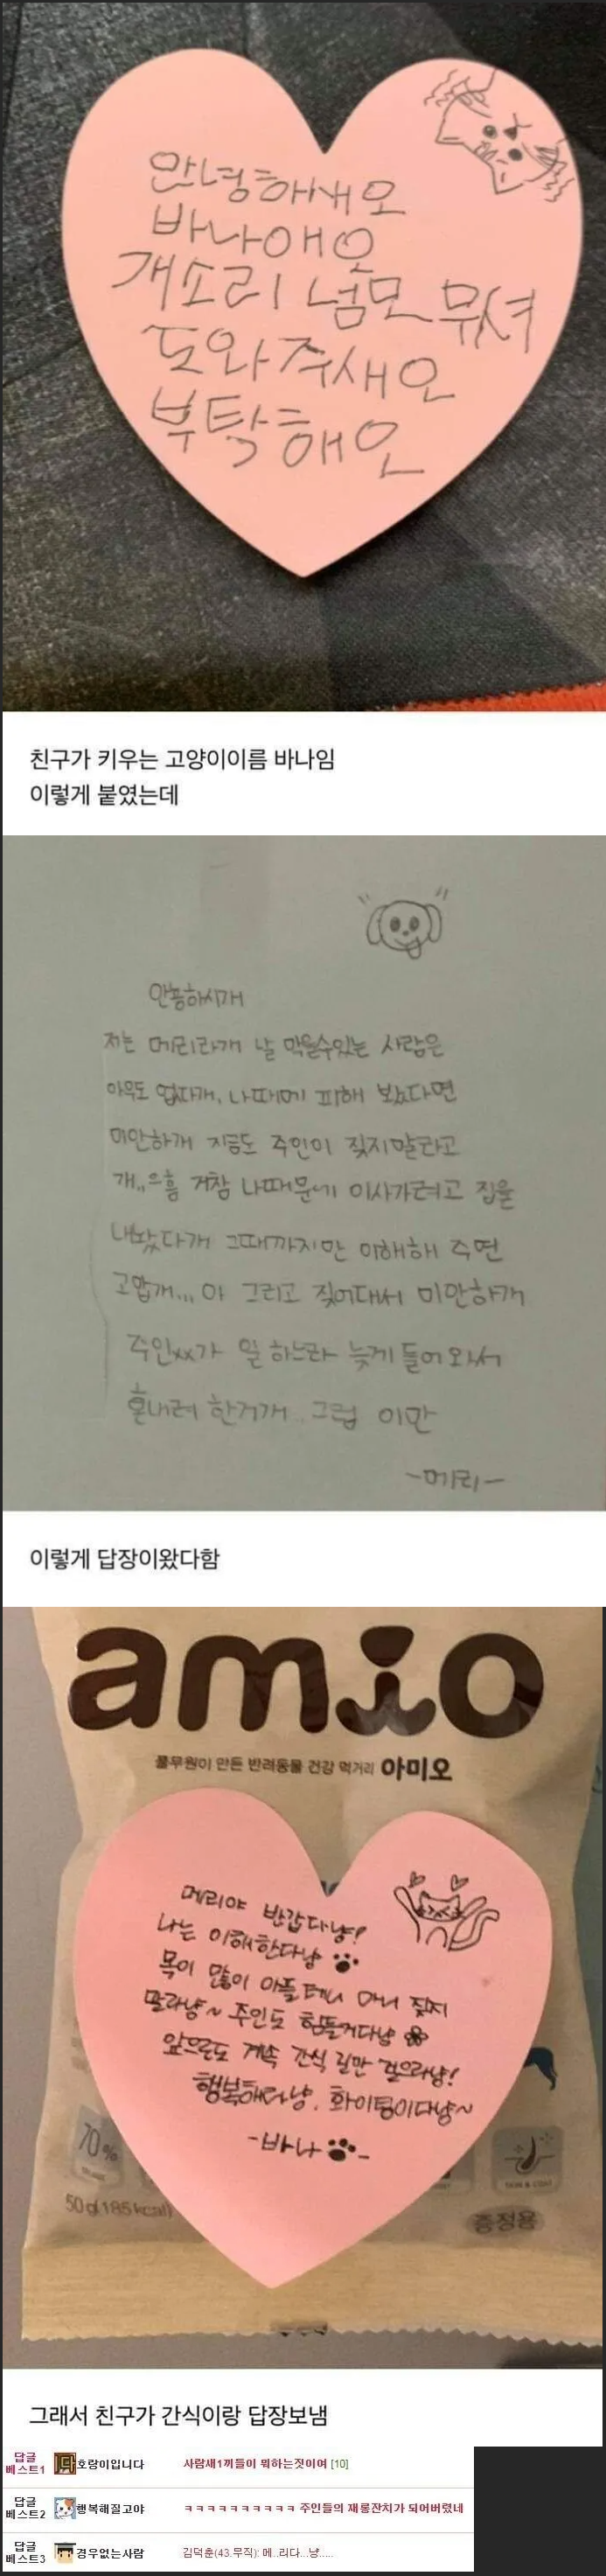 안녕하새오
바나애오
개소리 넘모 무셔
도와주새오
부탁해오
친구가 키우는 고양이이름 바나임
이렇게 붙였는데
안뇽하시개
저는 메리라개 날 막을수있는 사람은
아무도 업다개, 나때메 피해 봤다면
미안하개 지금도 주인이 짖지말라고
개,,으흠 거참 나때문에 이사가려고 집을
내놨다개 그때까지만 이해해 주면
고맙개... 아 그리고 짖어대서 미안하개
주인xx가 일 하느라 늦게 들어와서
혼내려 한거개.. 그럼 이만
-메리-
이렇게 답장이왔다함
amio
풀무원이 만든 반려동물 건강 먹거리 아미오
메리야 반갑다냥!
나는 이해한다냥
목이 많이 아플테니 마니 짖지
말라냥~ 주인도 힘들거다냥
앞으론도 계속 간식 길만 걸으라냥!
행복해라냥. 화이팅이다냥~
-바나-
70%
50g(185kcal)
SKIN & COAT
증정용
그래서 친구가 간식이랑 답장보냄
답글
베스트1
호랑이입니다
사람새1끼들이 뭐하는짓이여 [10]
답글
베스트2
행복해질고야
ㅋㅋㅋㅋㅋㅋㅋㅋㅋㅋ 주인들의 재롱잔치가 되어버렸네
답글
베스트3
경우없는사람
김덕춘(43.무직): 메..리다...냥.....